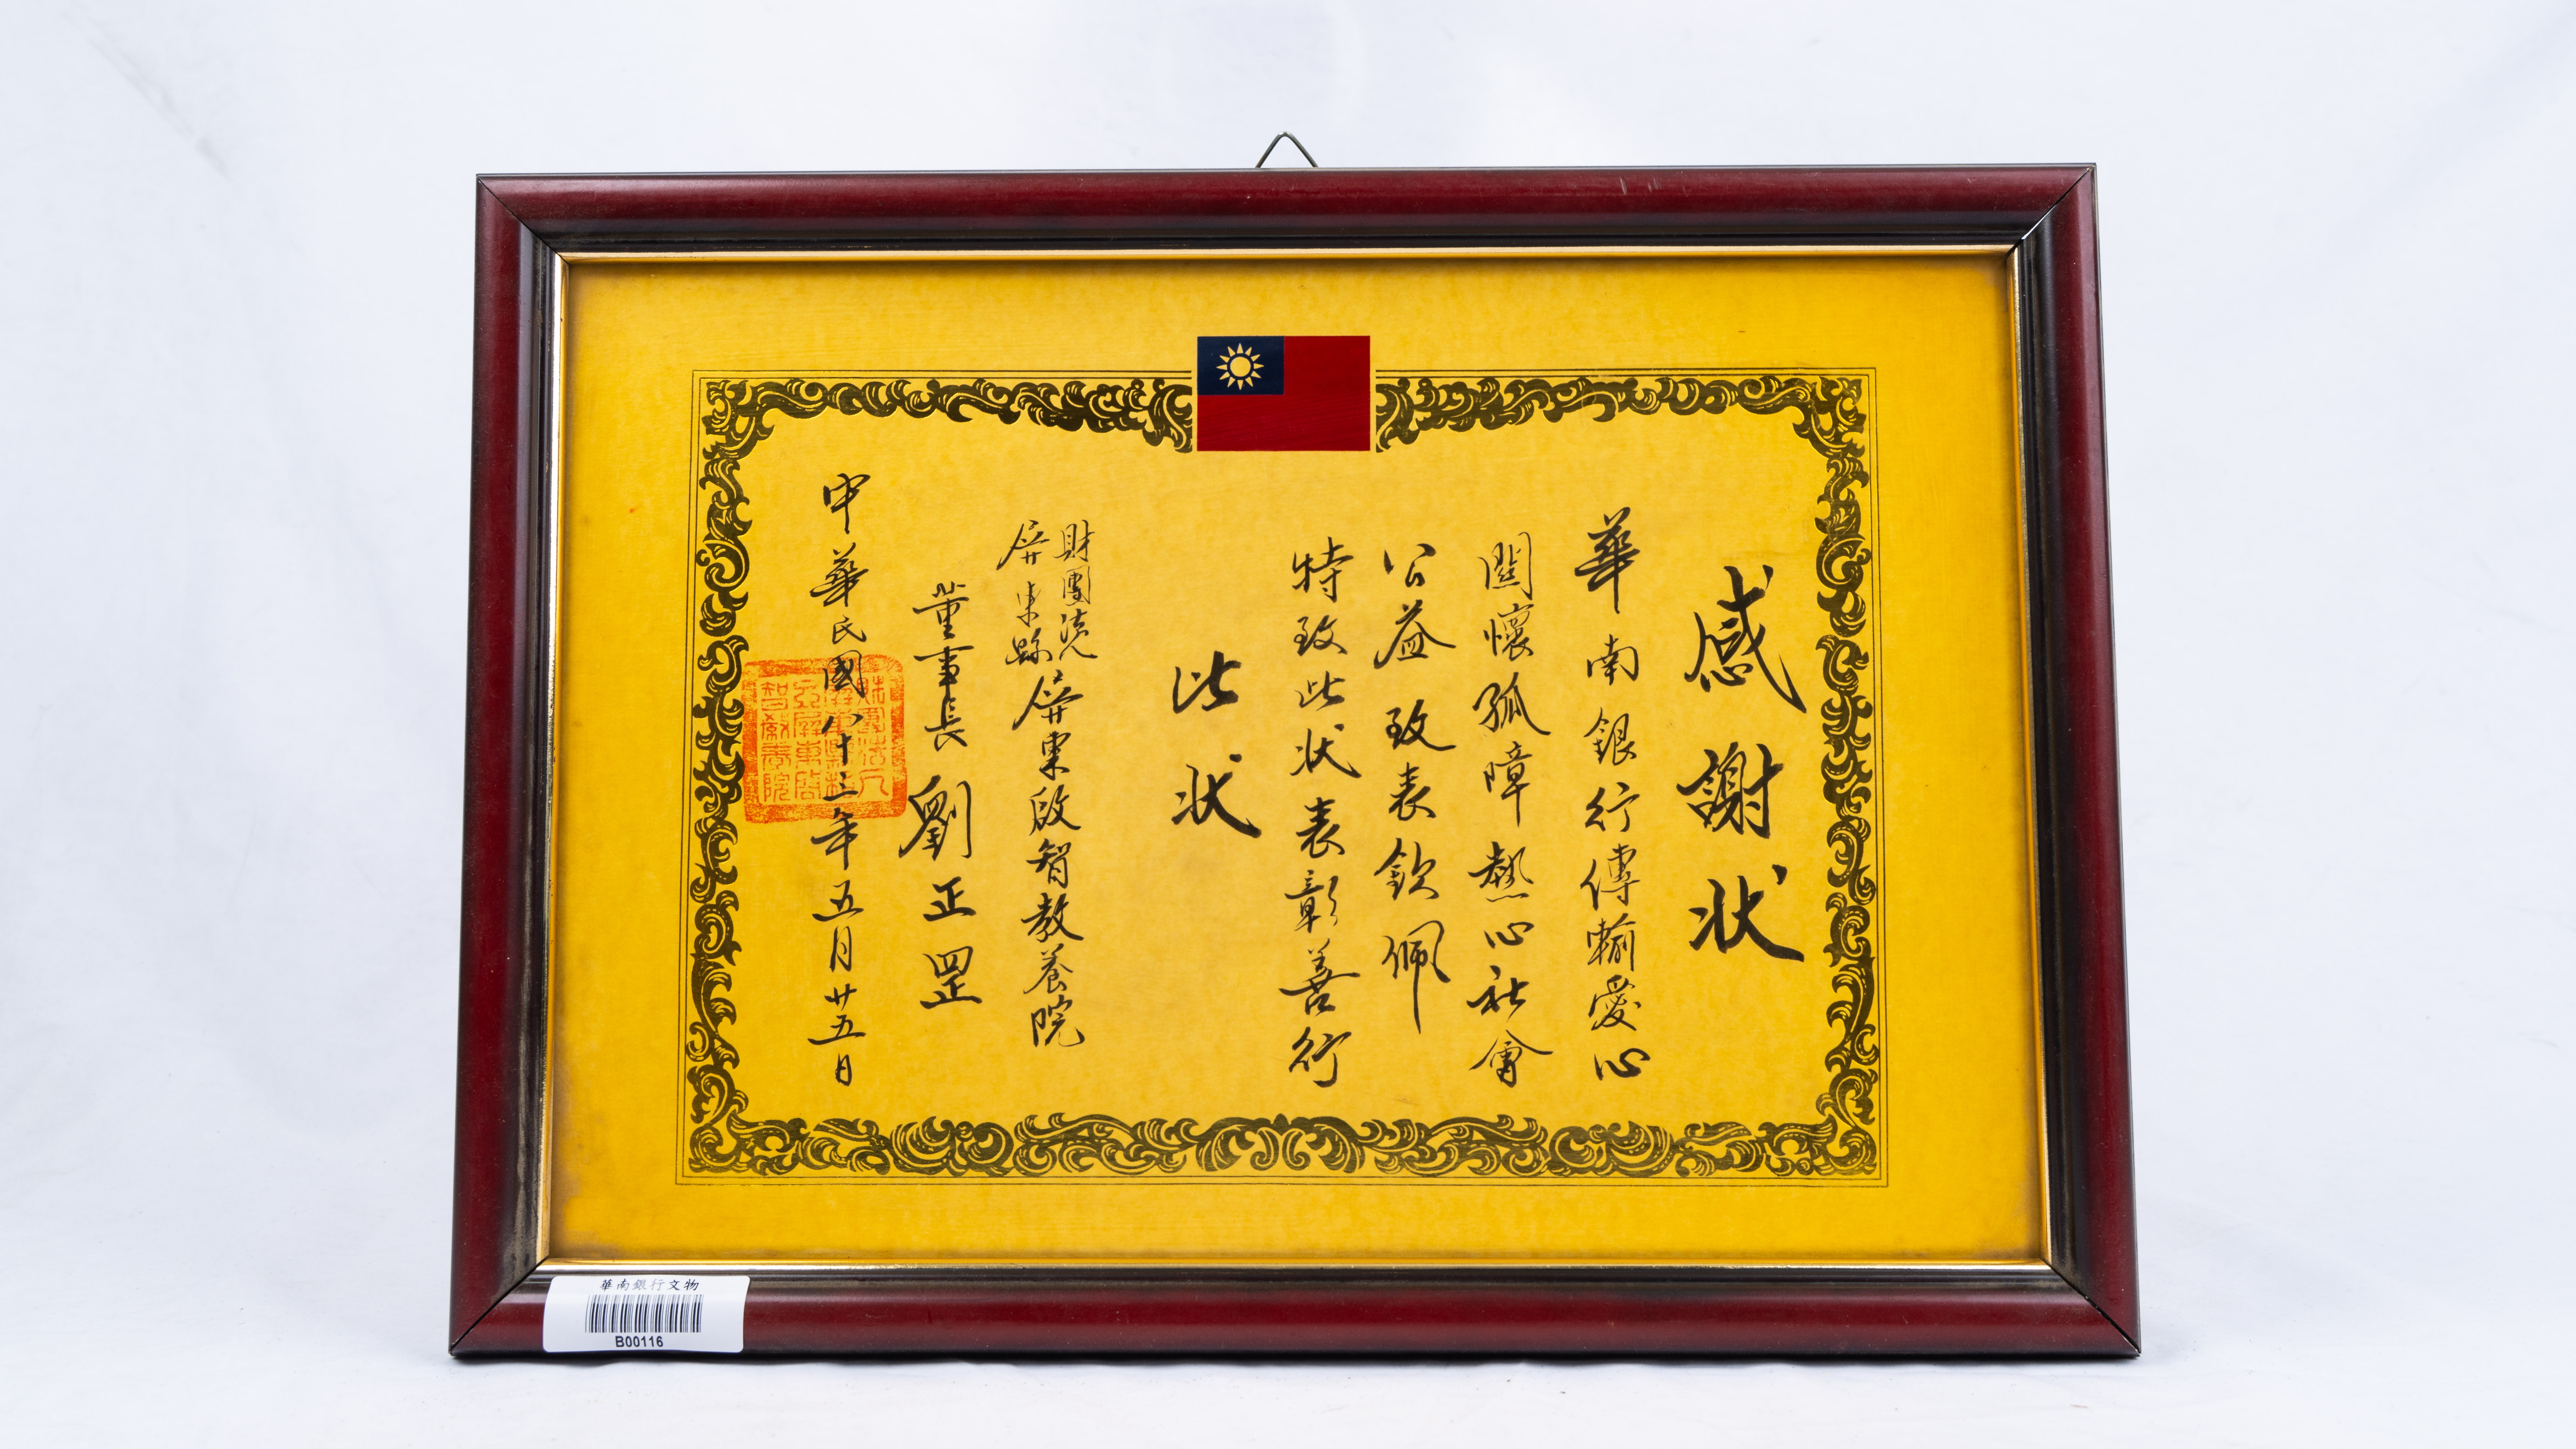 感謝狀
華南銀行傳輸愛心
關懷孤障熱心社會
公益致表欽佩
特致此狀表彰善行
此狀
財團法人
屏東縣
屏東啟智教養院
董事長 劉正罡
中華民國八十三年五月廿五日
華南銀行文物
B00116